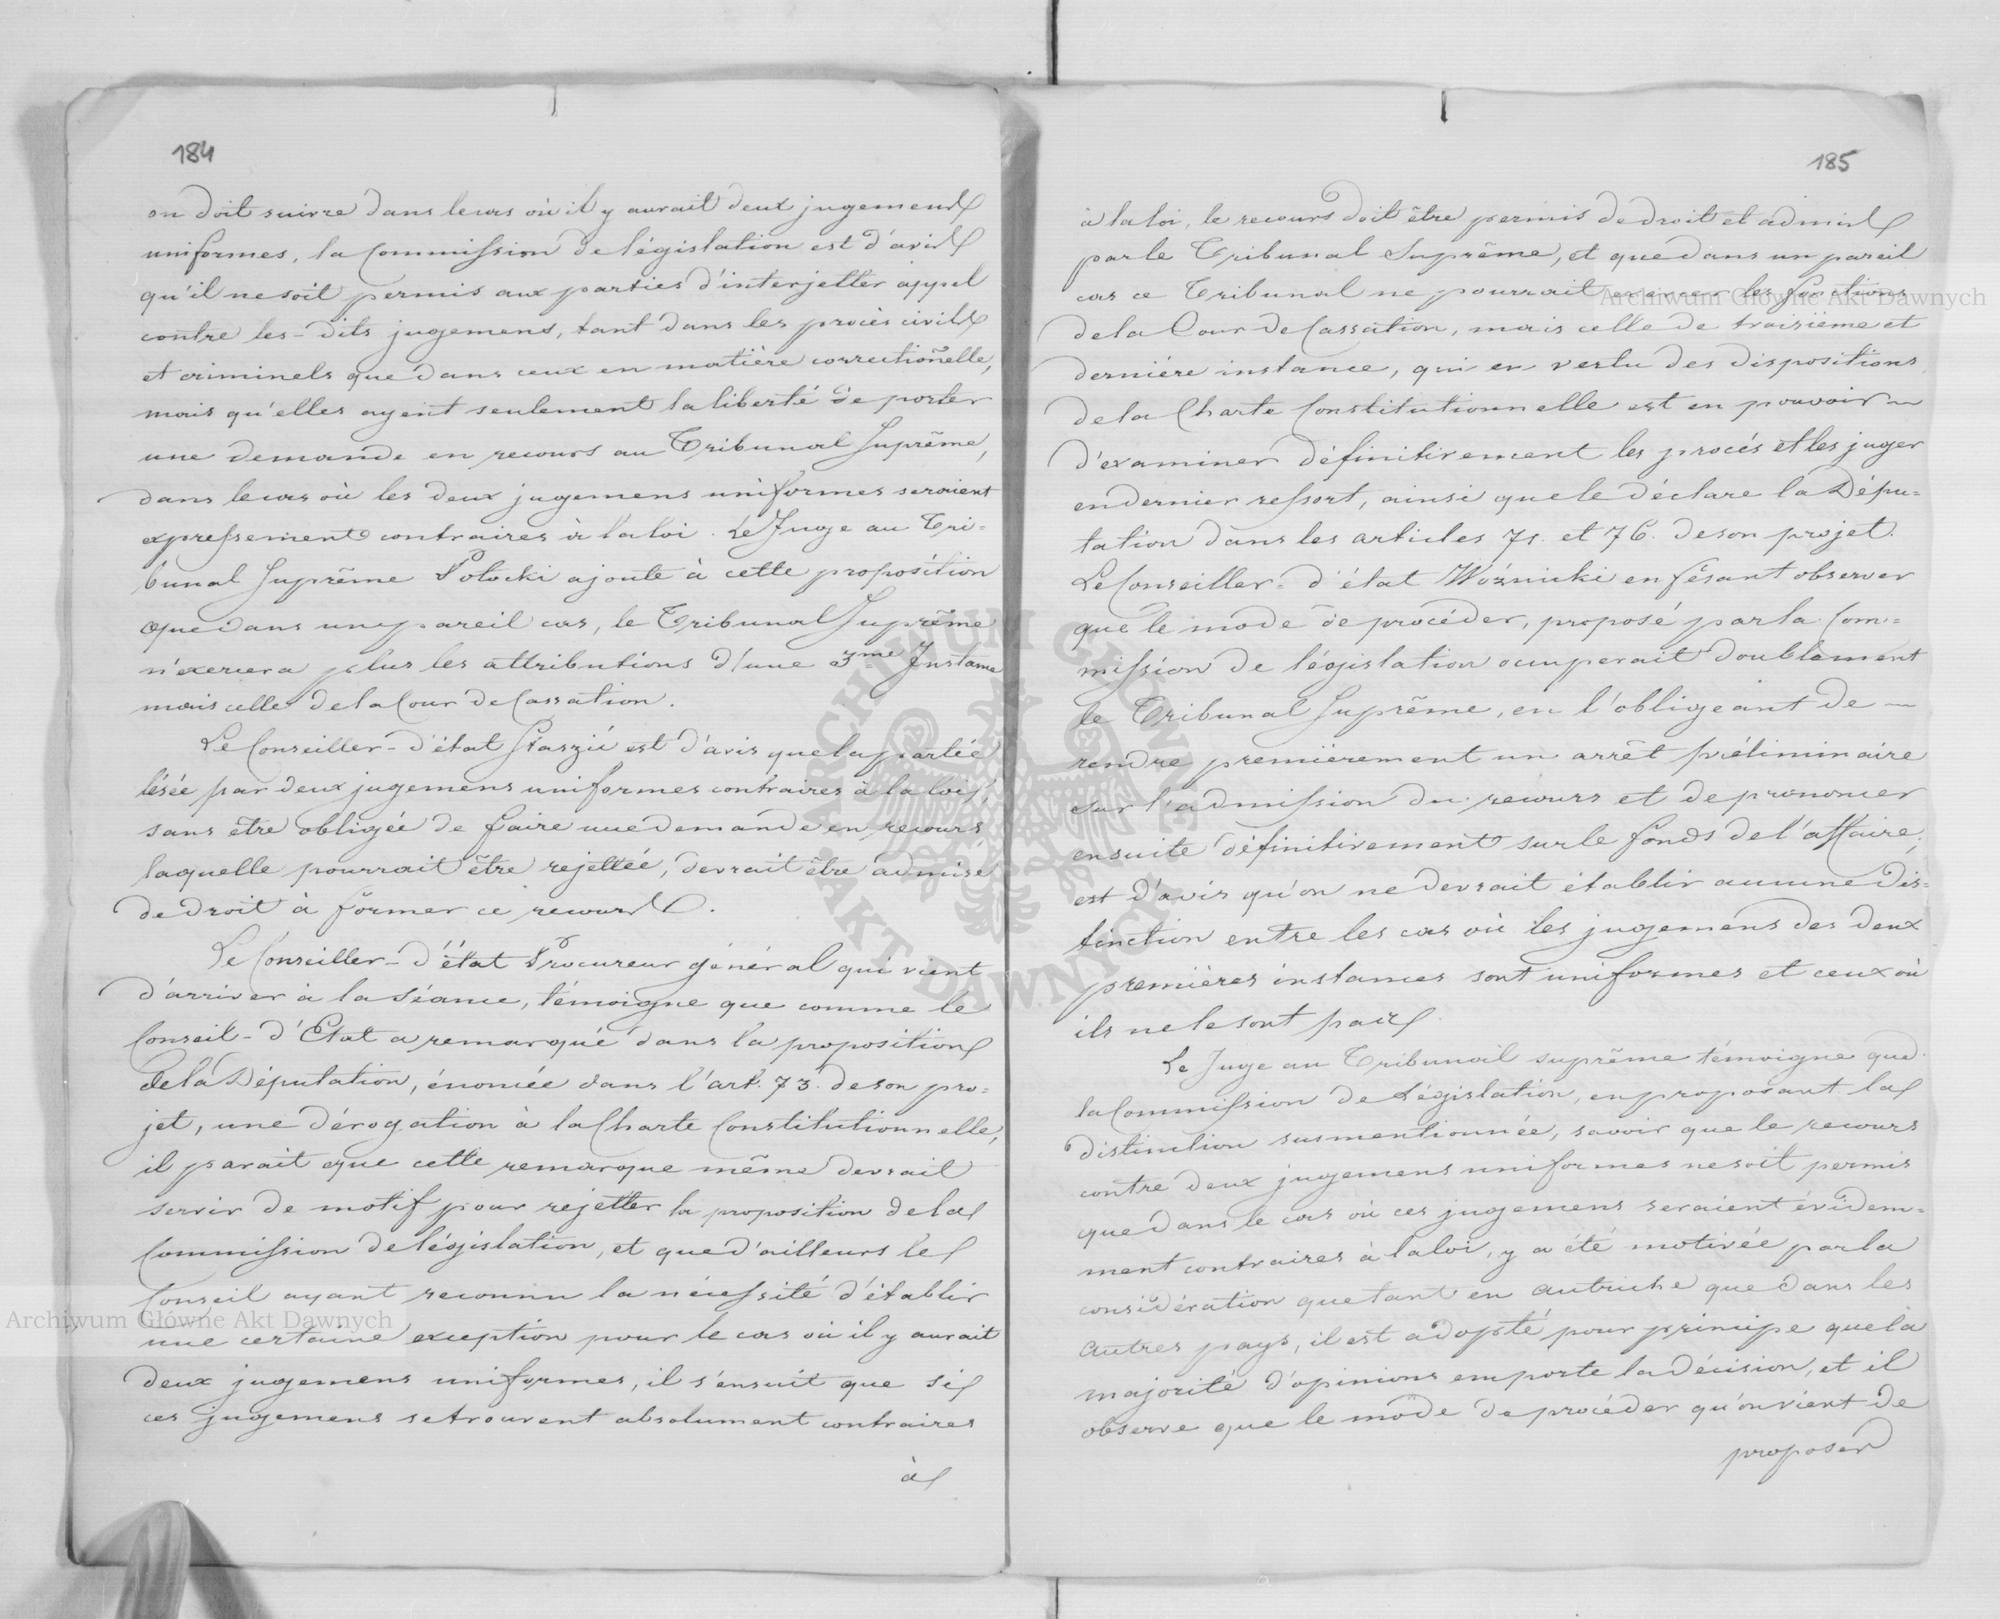 184
on doit suivre dans le cas où il y aurait deux jugemens
uniformes, la Commission de législation est d'avis
qu'il ne soit permis aux parties d'interjetter appel
contre les-dits jugemens, tant dans les procès civils
et criminels que dans ceux en matière correctionelle,
mais qu'elles ayent seulement la liberté de porter
une demande en recours au Tribunal Suprême,
dans le cas où les deux jugemens uniformes seraient
expressement contraires à la loi. Le Juge au Tri-
bunal Suprême Potocki ajoute à cette proposition
que dans un pareil cas, le Tribunal Suprême
n'exercera plus les attributions d'une 3me Instance
mais celle de la Cour de Cassation.
Le Conseiller-d'état Staszic est d'avis que la partie
lésée par deux jugemens uniformes contraires à la loi,
sans être obligée de faire une demande en recours
laquelle pourrait être rejettée, devrait être admise
de droit à former ce recours.
Le Conseiller-d'état Procureur général qui vient
d'arriver à la séance, témoigne que comme le
Conseil-d'Etat a remarqué dans la proposition
de la Députation, énoncée dans l'art. 73. de son pro-
jet, une dérogation à la Charte Constitutionnelle,
il parait que cette remarque même devrait
servir de motif pour rejetter la proposition de la
Commission de législation, et que d'ailleurs le
Conseil ayant reconnu la nécessité d'établir
une certaine exception pour le cas où il y aurait
deux jugemens uniformes, il s'ensuit que si
ces jugemens se trouvent absolument contraires
à
185
à la loi, le recours doit être permis de droit et admis
par le Tribunal Suprême, et que dans un pareil
cas ce Tribunal ne pourrait exercer les fonctions
de la Cour de Cassation, mais celle de troisième et
dernière instance, qui en vertu des dispositions
de la Charte Constitutionnelle est en pouvoir
d'examiner définitivement les procés et les juger
en dernier ressort, ainsi que le déclare la Dépu-
tation dans les articles 71. et 76. de son projet.
Le Conseiller-d'état Woźnicki en fésant observer
que le mode de procéder, proposé par la Com-
mission de législation occuperait doublement
le Tribunal Suprême, en l'obligeant de
rendre premièrement un arrêt préliminaire
sur l'admission du recours et de prononcer
ensuite définitivement sur le fonds de l'affaire,
est d'avis qu'on ne devrait établir aucune dis-
tinction entre les cas où les jugemens des deux
premières instances sont uniformes et ceux où
ils ne le sont pas.
Le Juge au Tribunal suprême témoigne que
la Commission de Législation, en proposant la
distinction susmentionnée, savoir que le recours
contre deux jugemens uniformes ne soit permis
que dans le cas où ces jugemens seraient évidem-
ment contraires à la loi, y a été motivée par la
considération que tant en Autriche que dans les
autres pays, il est adopté pour principe que la
majorité d'opinions emporte la décision, et il
observe que le mode de procéder qu'on vient de
proposer
Archiwum Główne Akt Dawnych
Archiwum Główne Akt Dawnych
ARCHIWUM GŁÓWNE AKT DAWNYCH